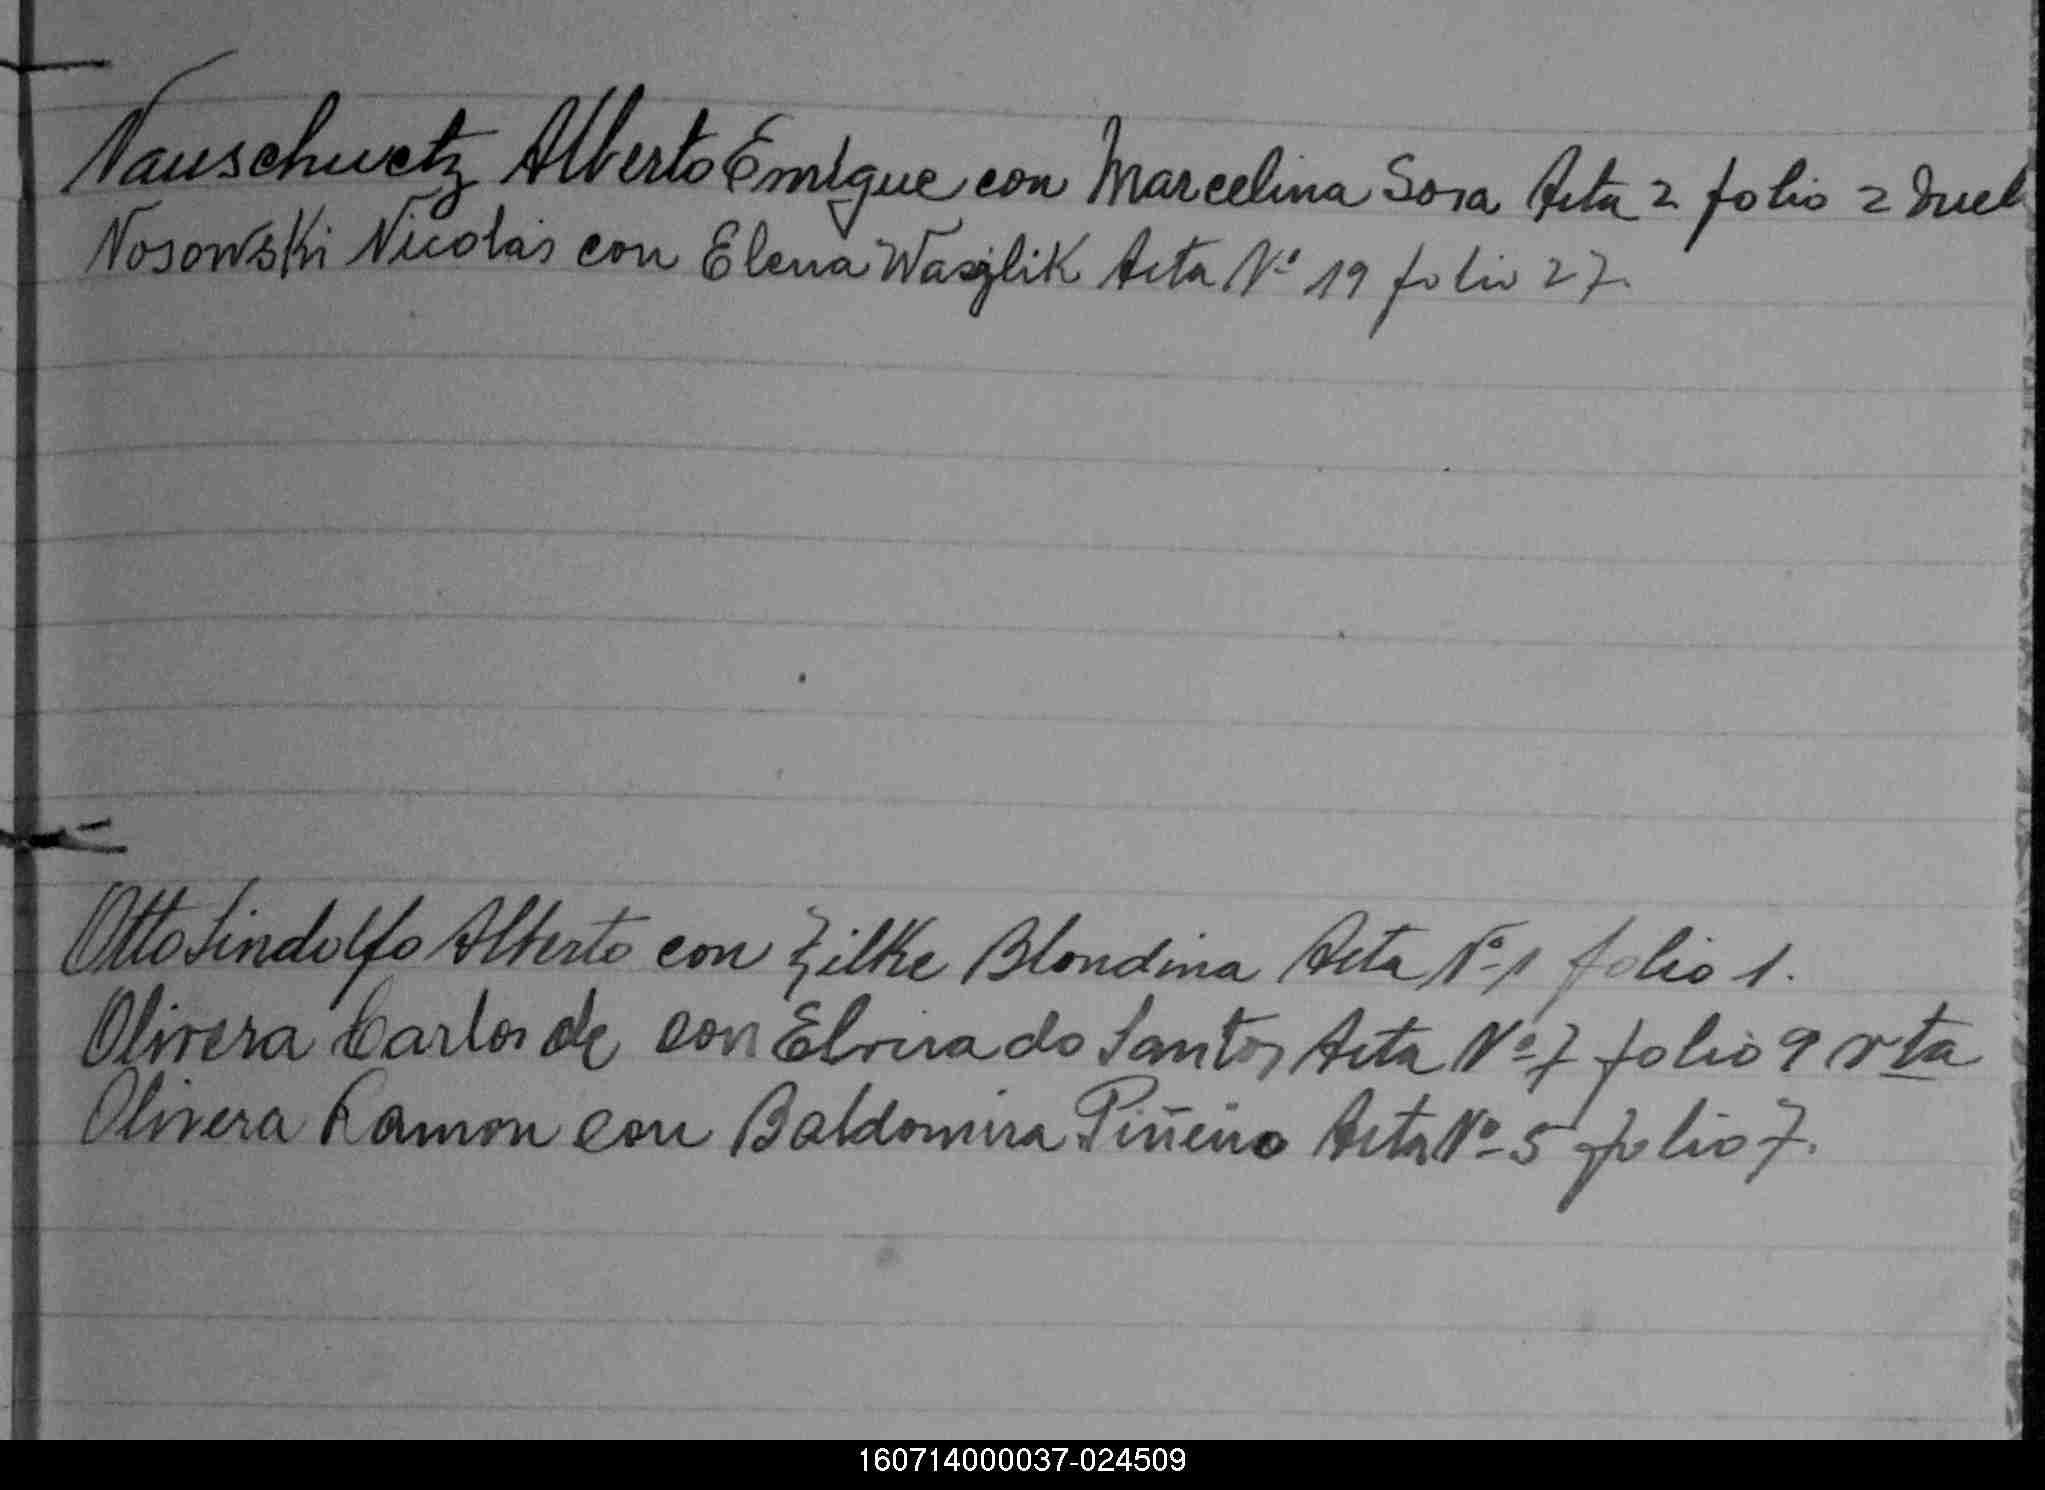 Nauschuetz Alberto Emigue con Marcelina Sosa Acta 2 folio 2 vuel
Nosowski Nicolas con Elena Wasylik Acta Nº 19 folio 27.
Otto Lindolfo Alberto con Zilke Blondina Acta Nº 1 folio 1.
Olivera Carlos de con Elvira do Santos Acta Nº 7 folio 9 vta
Olivera Ramon con Baldomira Piñeiro Acta Nº 5 folio 7.
160714000037-024509